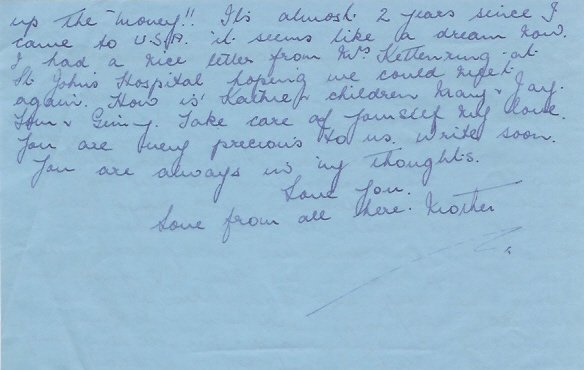 up the "money"!! It's almost 2 years since I
came to U.S.A. it seems like a dream now.
I had a nice letter from Mrs Kettenring at
St Johns Hospital hoping we could meet
again. How is Kathie & children Mary & Jay.
Tom & Ginny. Take care of yourself my love.
You are very precious to us. Write soon.
You are always in my thoughts.
Love you.
Love from all here. Mother